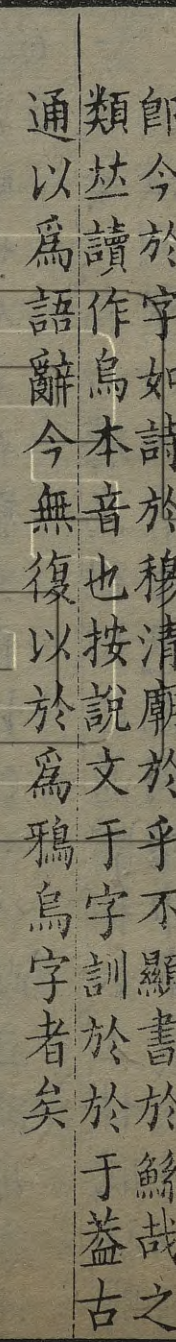 卽今於字如詩於穆清廟於乎不顯書於鯀哉之
類𠀤讀作烏本音也按說文于字訓於於于葢古
通以爲語辭今無復以於爲鴉烏字者矣